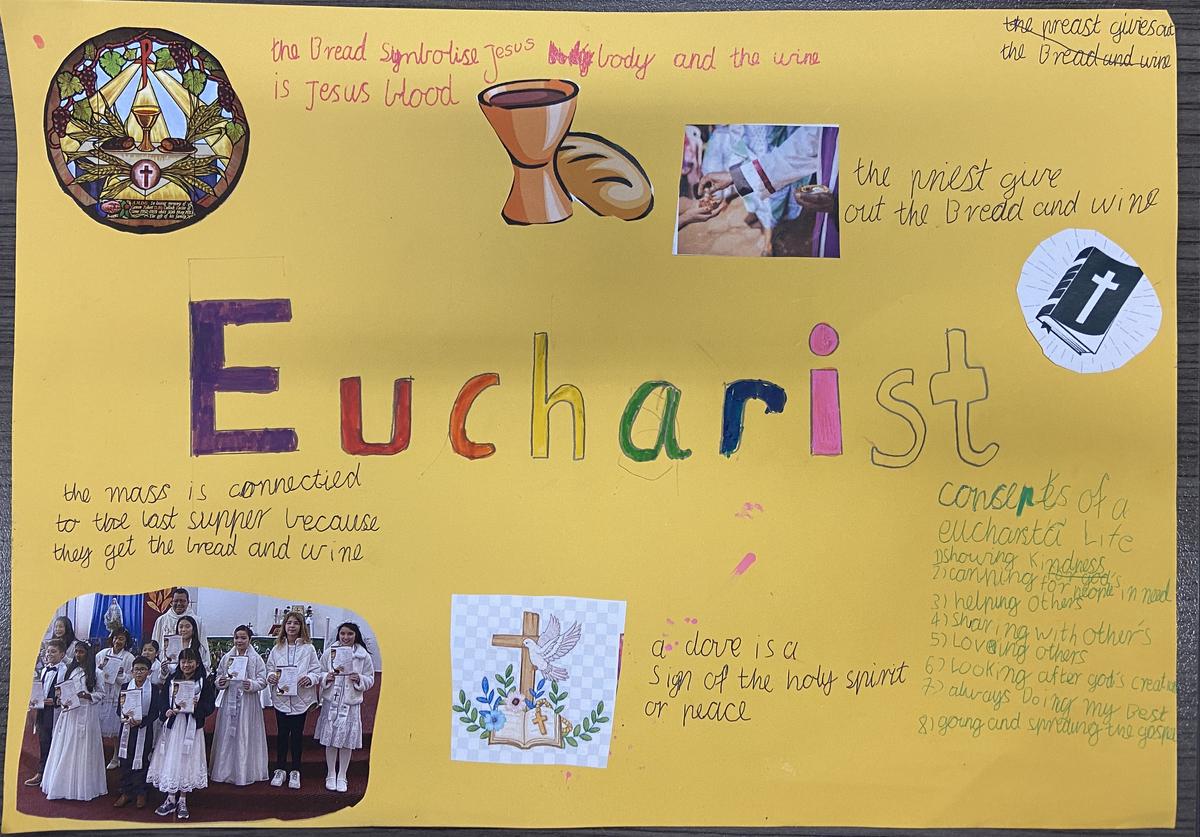 the preast gives out
the Bread and wine
the Bread Symbolise Jesus body and the wine
is Jesus blood
the priest give
out the Bread and wine
Eucharist
the mass is connectied
to the last supper because
they get the bread and wine
consepts of a
eucharsta Life
1) showing Kindness
2) carring for god's people in need
3) helping others
4) sharing with other's
5) Loveing others
6) Looking after god's creation
7) always Doing my Best
8) going and spreding the gospel
a dove is a
Sign of the holy spirit
or peace